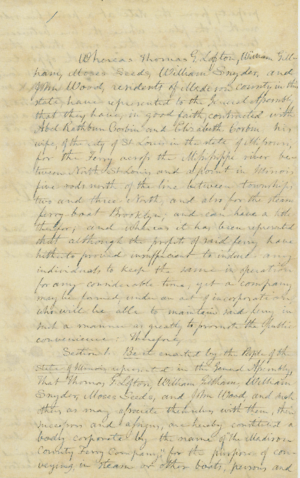 Whereas Thomas G. Lofton, William Gill-
ham, Moses Leeds, William Snyder, and
John Wood, residents of Madison county in this
state have represented to the General Assembly
that they have in good faith, contracted with
Abel Rathbun Corbin and Elizabeth Corbin his
wife, of the city of St Louis in the state of Missouri,
for the Ferry across the Mississippi river be-
tween North St. Louis, and a point in Illinois,
four rods north of the line between townships
two and three North, and also for the steam
ferry boat Brooklyn, and can have a title
thereto, and whereas it has been represented
that although the profits of said ferry have
hitherto proved insufficient to induce any
individuals to keep the same in operation
for any considerable time, yet a company
may be formed under an act of incorporation,
who will be able to maintain said ferry in
such a manner as greatly to promote the public
convenience: Therefore,
Section 1. Be it enacted by the People of the
State of Illinois, represented in the General Assembly,
That Thomas G. Lofton, William Gillham, William
Snyder, Moses Leeds, and John Wood and such
others as may associate themselves with them, their
successors and assigns, are hereby constituted a
body corporate by the name of the "Madison
County Ferry Company," for the purposes of con-
veying in steam or other boats, persons and